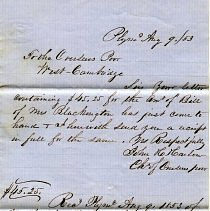 Plymo Aug 9. /53
To the Overseers Poor
West Cambridge
Sir Your letter
containing $45.25 for the Amt of Bill
of Mrs Blackington has just come to
hand & I herewith send you a receipt
in full for the same. Yrs Respectfully
John
Ch of Overseers poor
$45.25.
Recd Plymo Aug 9. 1853 of